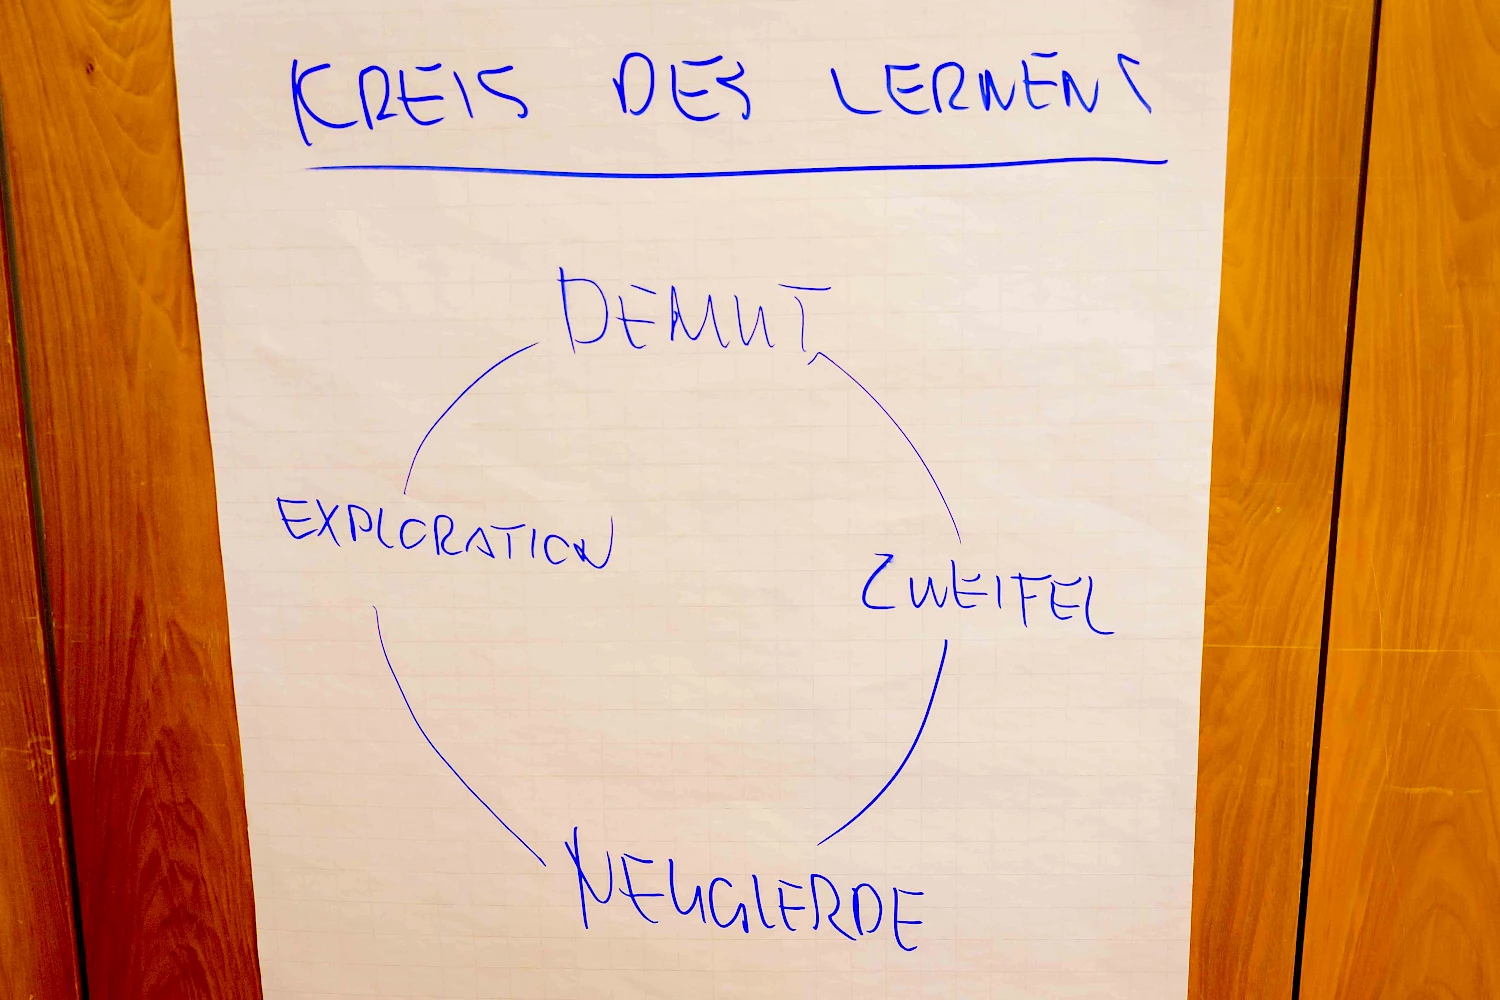 KREIS DES LERNENS
DEMUT
EXPLORATION
ZWEIFEL
NEUGIERDE